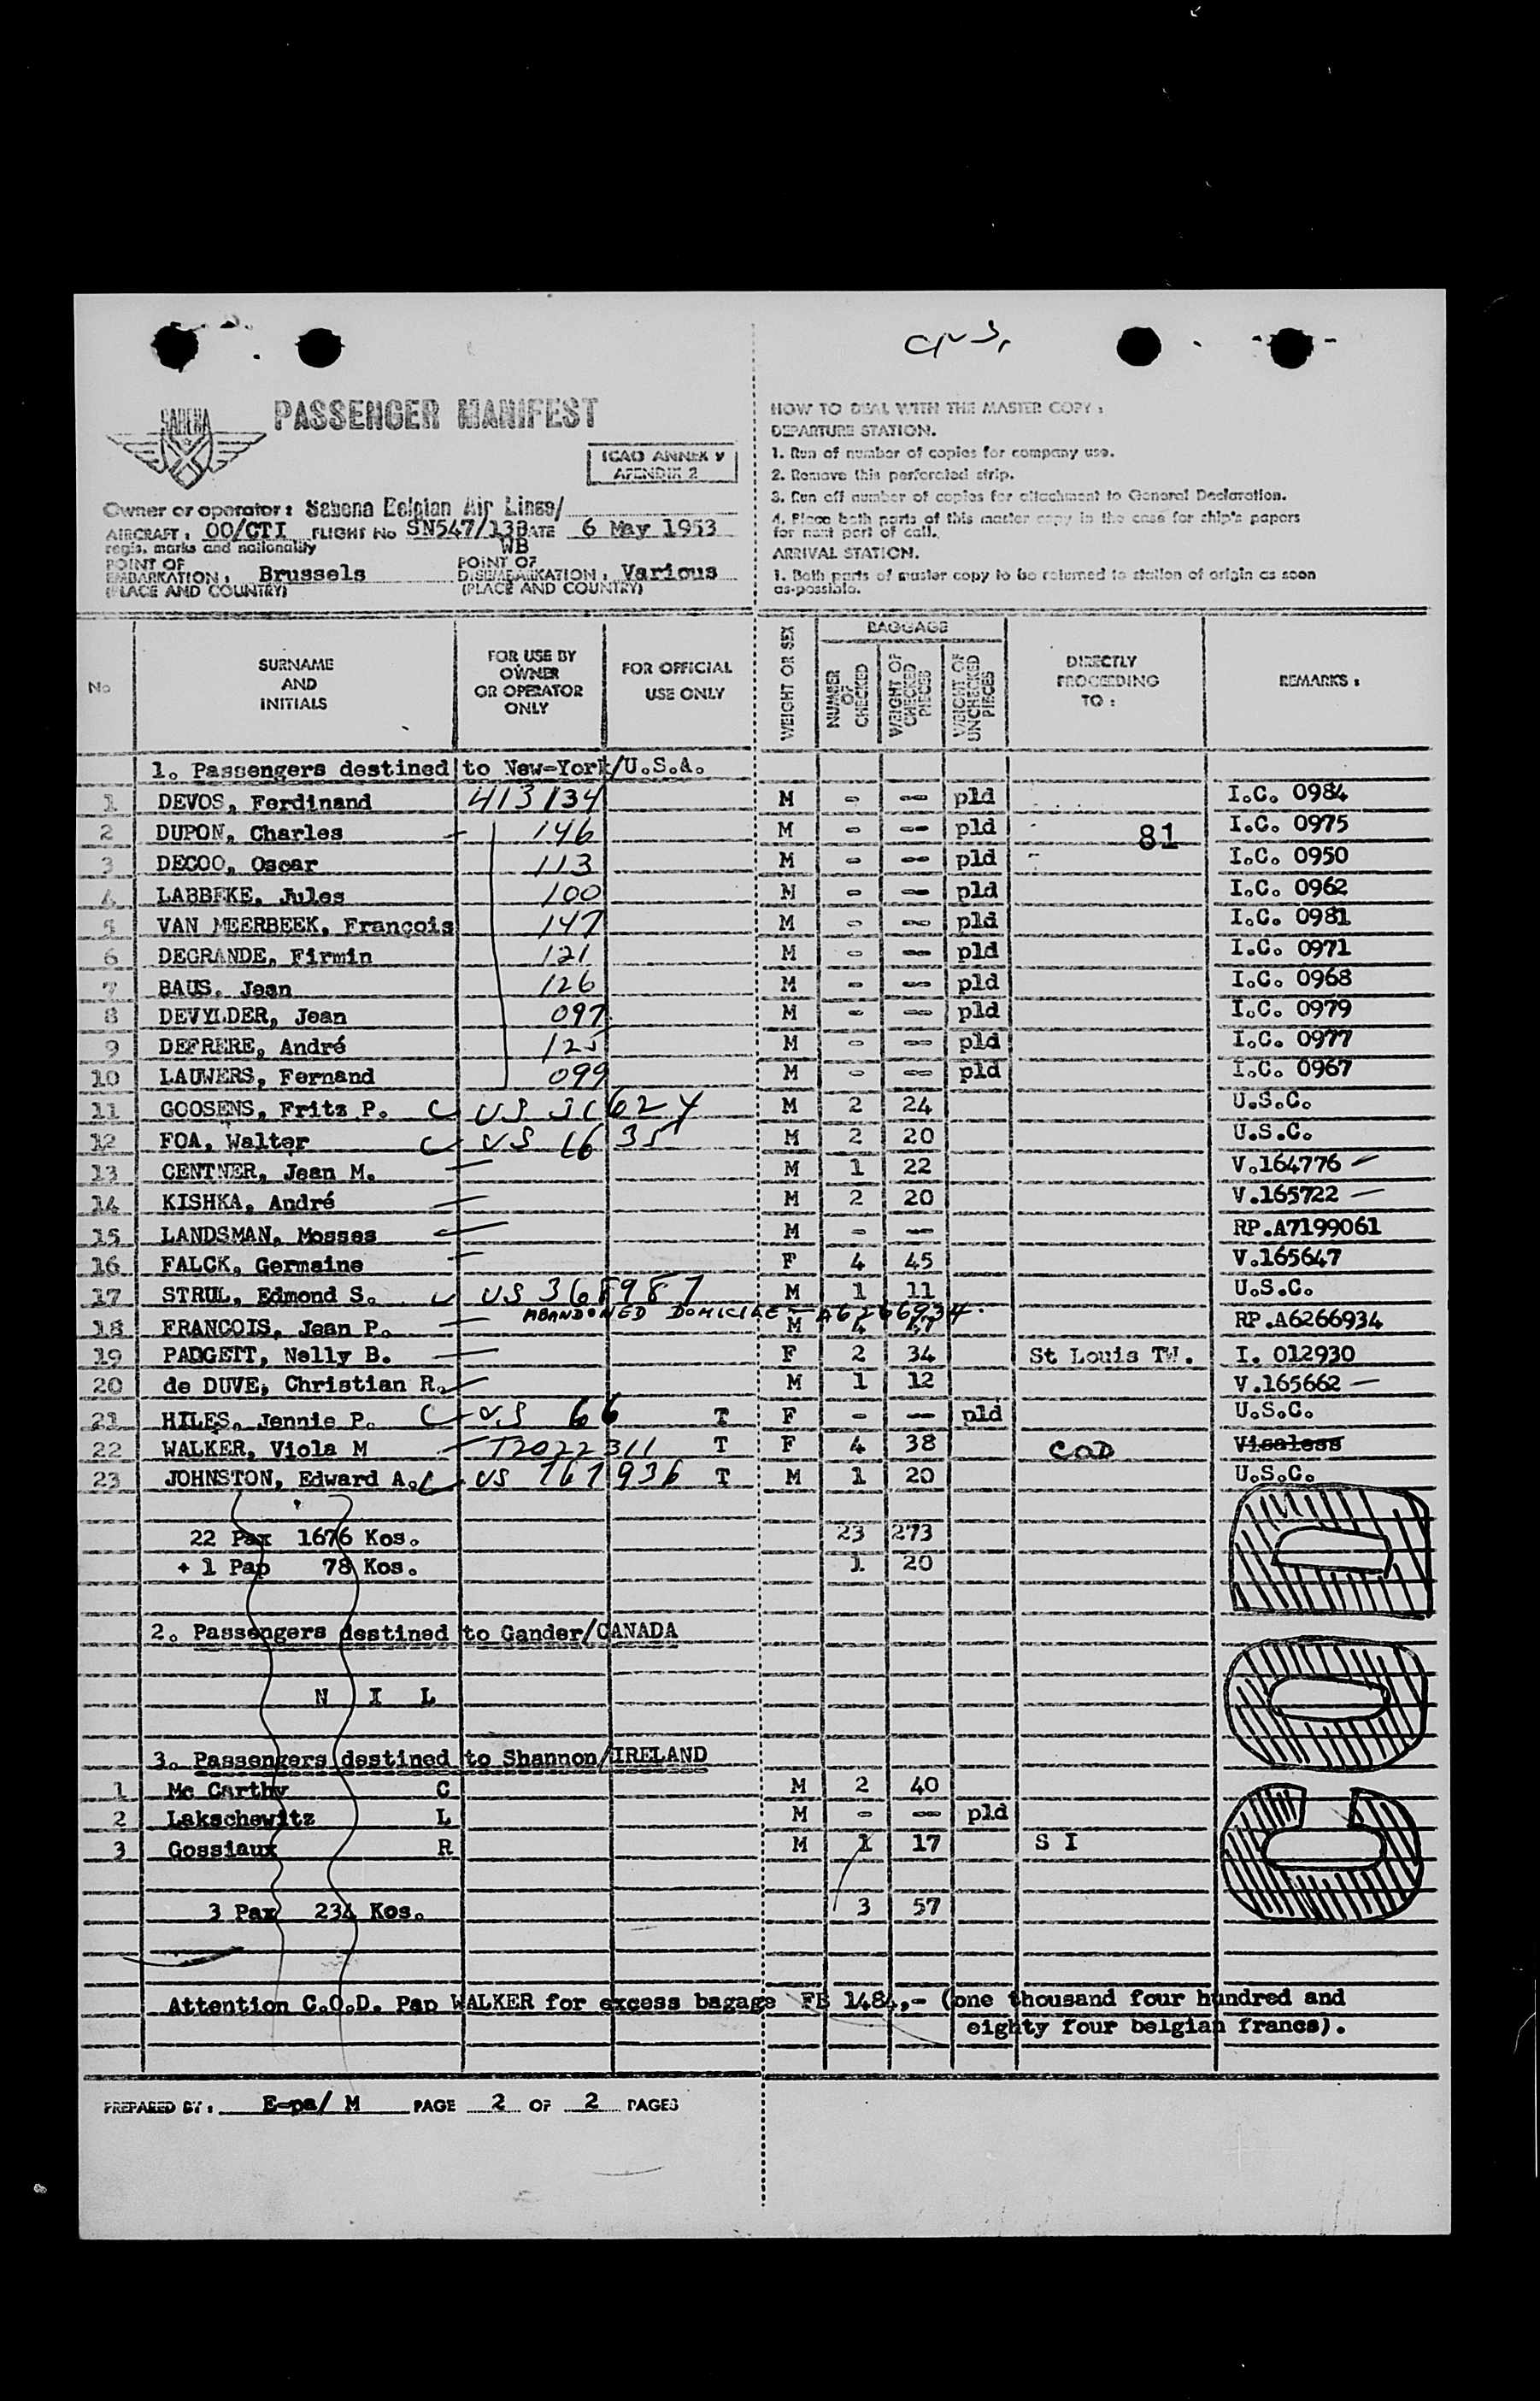 SABENA
PASSENGER MANIFEST
ICAO ANNEX 9
APENDIX 2
Owner or operator : Sabena Belgian Air Lines/
AIRCRAFT : OO/CTI FLIGHT No SN547/13B DATE 6 May 1953
regis. marks and nationality WB
POINT OF EMBARKATION : Brussels POINT OF DISEMBARKATION : Various
(PLACE AND COUNTRY) (PLACE AND COUNTRY)
HOW TO DEAL WITH THE MASTER COPY :
DEPARTURE STATION.
1. Run of number of copies for company use.
2. Remove this perforated strip.
3. Run off number of copies for attachment to General Declaration.
4. Place both parts of this master copy in the case for ship's papers
for next port of call.
ARRIVAL STATION.
1. Both parts of master copy to be returned to station of origin as soon
as-possible.
No SURNAME AND INITIALS FOR USE BY OWNER OR OPERATOR ONLY FOR OFFICIAL USE ONLY WEIGHT OR SEX BAGGAGE NUMBER OF CHECKED WEIGHT OF CHECKED PIECES WEIGHT OF UNCHECKED PIECES DIRECTLY PROCEEDING TO : REMARKS :
1. Passengers destined to New-York/U.S.A.
1 DEVOS, Ferdinand 413134 M - -- pld I.C. 0984
2 DUPON, Charles 146 M - -- pld 81 I.C. 0975
3 DECOO, Oscar 113 M - -- pld I.C. 0950
4 LABBEKE, Jules 100 M - -- pld I.C. 0962
5 VAN MEERBEEK, François 147 M - -- pld I.C. 0981
6 DEGRANDE, Firmin 121 M - -- pld I.C. 0971
7 BAUS, Jean 126 M - -- pld I.C. 0968
8 DEVYLDER, Jean 097 M - -- pld I.C. 0979
9 DEFRERE, André 125 M - -- pld I.C. 0977
10 LAUWERS, Fernand 099 M - -- pld I.C. 0967
11 GOOSENS, Fritz P. US M 2 24 U.S.C.
12 FOA, Walter US 16 35 M 2 20 U.S.C.
13 CENTNER, Jean M. M 1 22 V.164776
14 KISHKA, André M 2 20 V.165722
15 LANDSMAN, Mosses M - -- RP.A7199061
16 FALCK, Germaine F 4 45 V.165647
17 STRUL, Edmond S. US 368987 M 1 11 U.S.C.
ABANDONED DOMICILE - A6266934.
18 FRANCOIS, Jean P. M 4 47 RP.A6266934
19 PADGETT, Nelly B. F 2 34 St Louis TW. I. 012930
20 de DUVE, Christian R. M 1 12 V.165662
21 HILES, Jennie P. US 66 T F - -- pld U.S.C.
22 WALKER, Viola M T2022311 T F 4 38 COD Visaless
23 JOHNSTON, Edward A. US 767936 T M 1 20 U.S.C.
22 Pax 1676 Kos. 23 273
+ 1 Pap 78 Kos. 1 20
2. Passengers destined to Gander/CANADA
N I L
3. Passengers destined to Shannon/IRELAND
1 Mc Carthy C M 2 40
2 Lakschewitz L M - -- pld
3 Gossiaux R M 1 17 S I
3 Pax 234 Kos. 3 57
Attention C.O.D. Pap WALKER for excess bagage FB 1484,- (one thousand four hundred and
eighty four belgian francs).
PREPARED BY : E-pa/ M PAGE 2 OF 2 PAGES